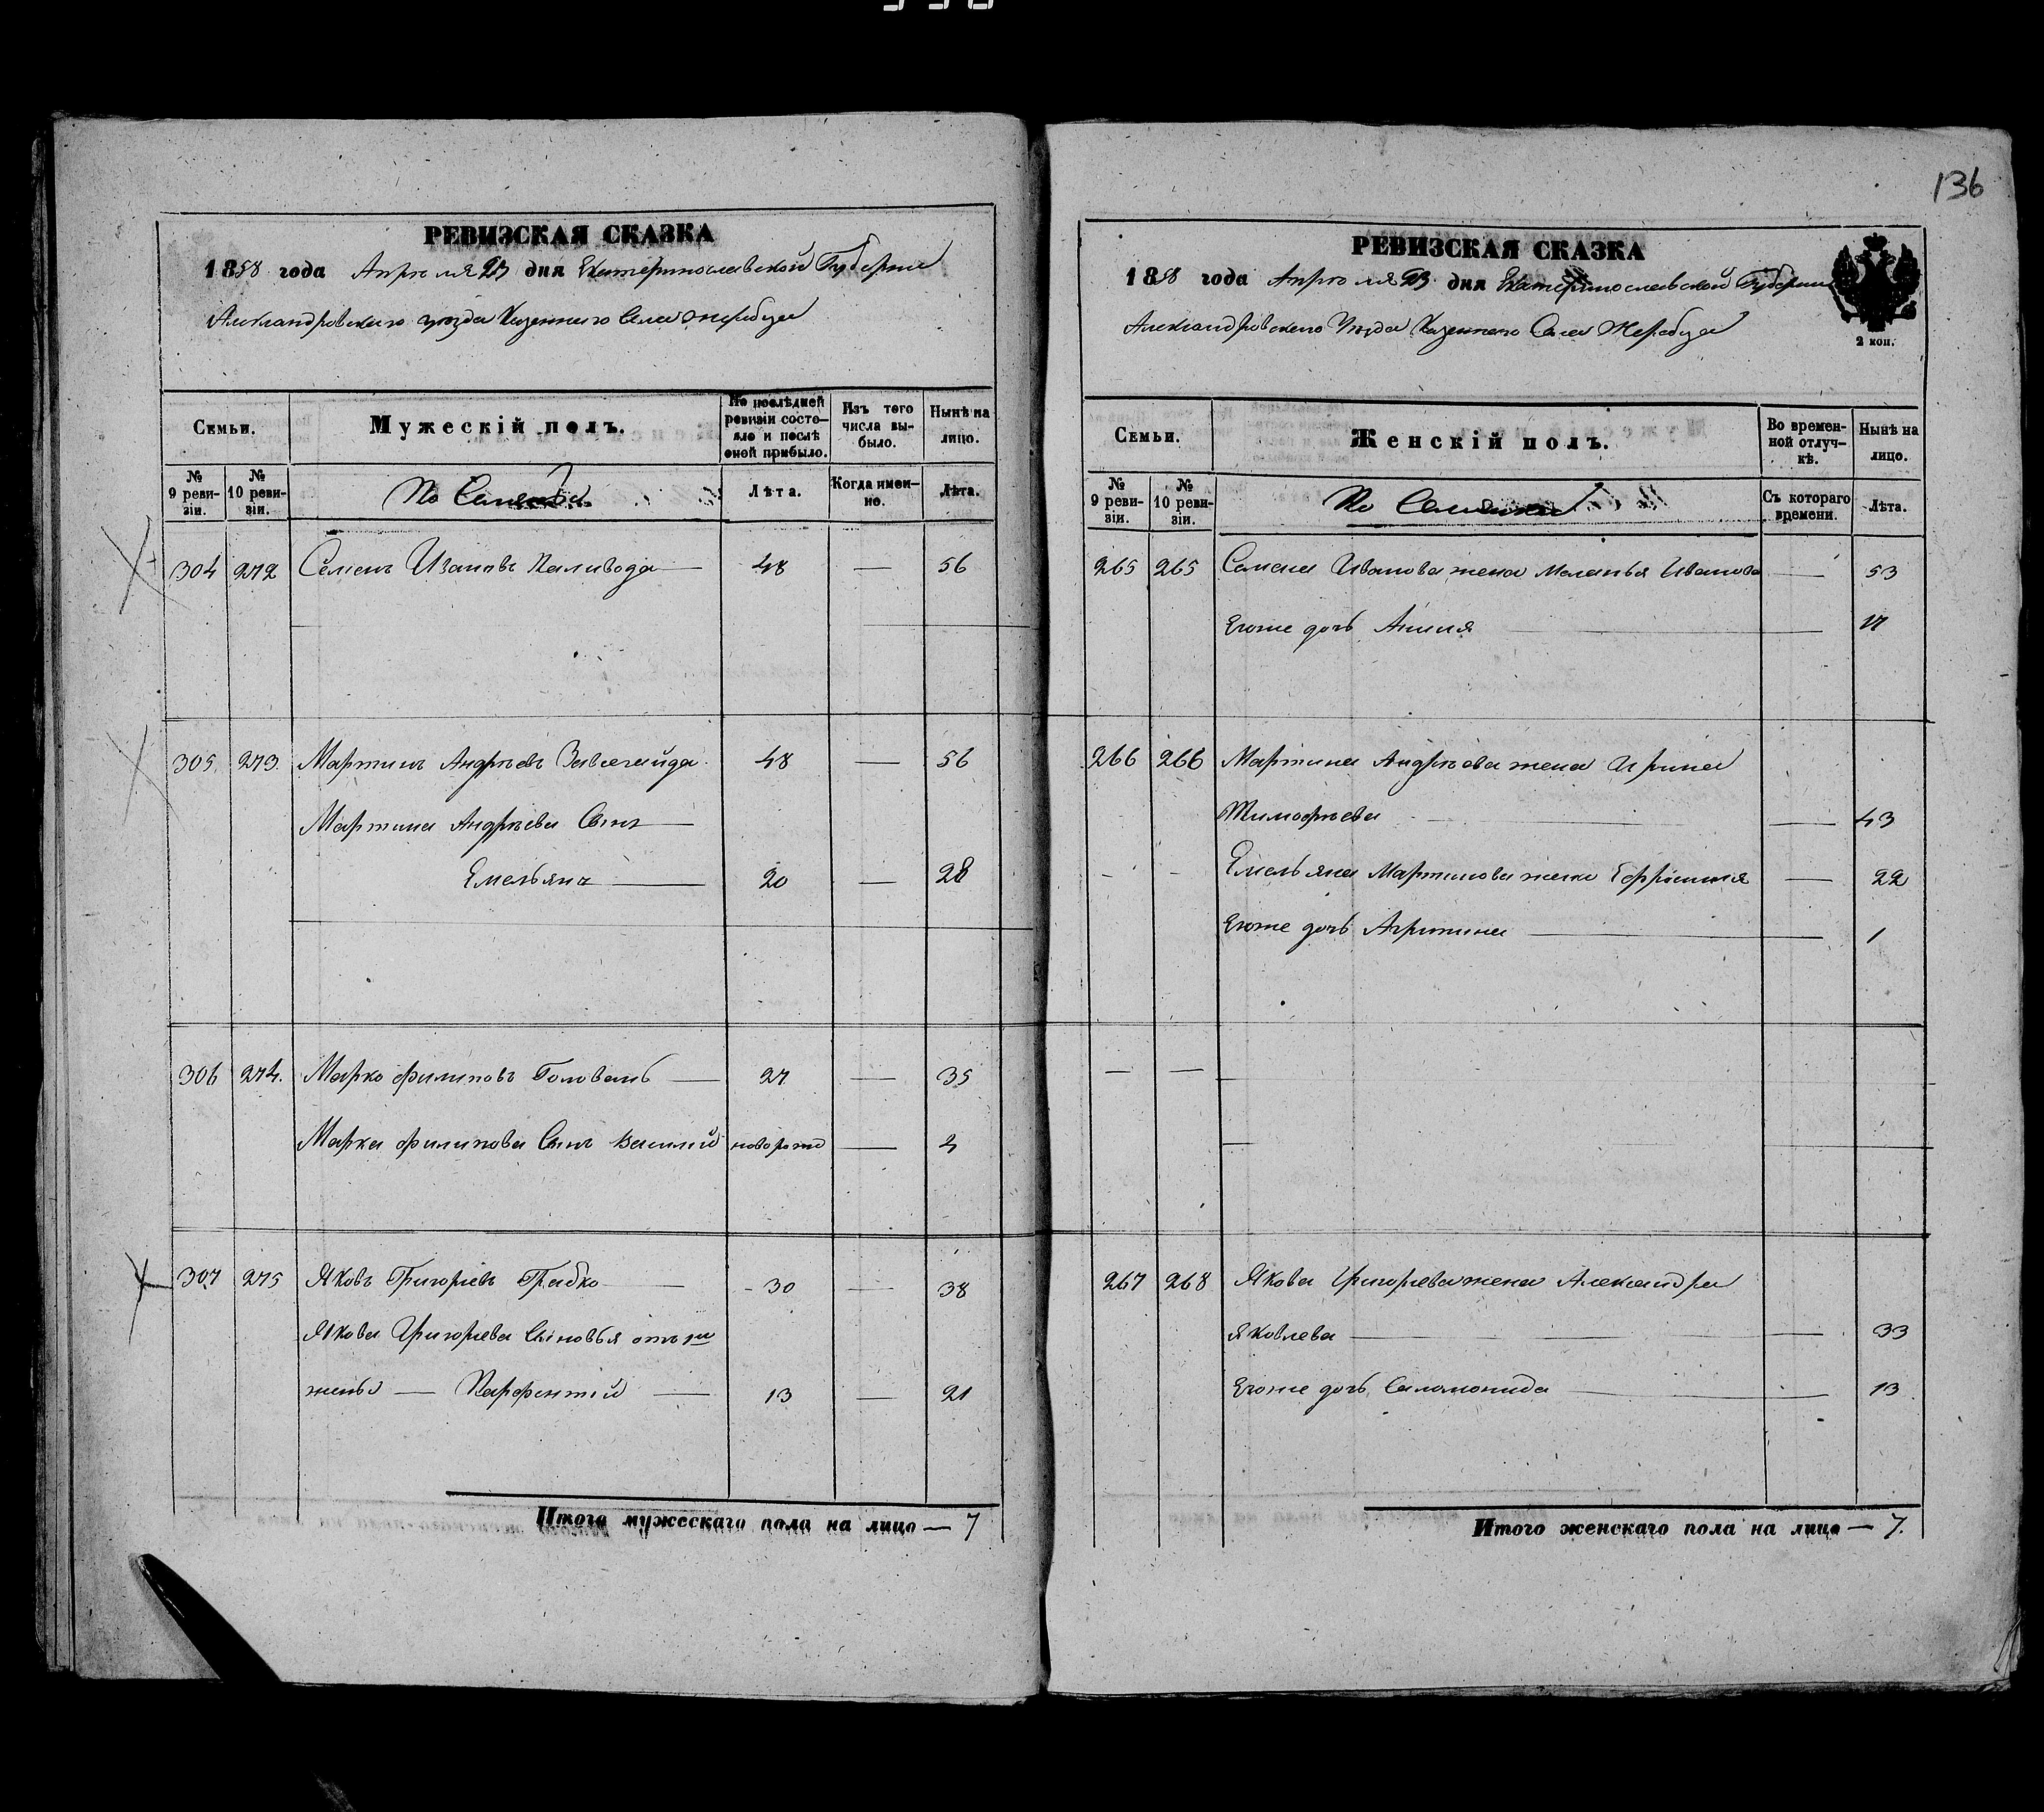 136
РЕВИЗСКАЯ СКАЗКА
1858 года Апреля 23 дня Екатеринославской Губерніи
Александровскаго уезда Казеннаго Села Жеребца
Семьи.
Мужескій полъ.
По послѣдней ревизіи состояло и послѣ оной прибыло.
Изъ того числа выбыло.
Нынѣ на лицо.
№ 9 ревизіи.
№ 10 ревизіи.
Лѣта.
Когда именно.
Лѣта.
304 272 Семенъ Ивановъ Паливода — 48 — 56
305. 273. Мартинъ Андреевъ 48 — 56
Мартина Андреева Сынъ —
Емельянъ — 20 — 28
306 274. Марко Филиповъ Головань — 27 — 35
Марка Филипова Сынъ Василий новорож —
307 275 Яковъ Григорьевъ Грибко — 30 — 38
Якова Григорьева Сыновья отъ 1й
жены — Парфентій — 13 — 21
Итого мужескаго пола на лицо — 7
РЕВИЗСКАЯ СКАЗКА
1858 года Апреля 23 дня Екатеринославской Губерніи
Александровскаго Уезда Казеннаго Села Жеребца
2 коп.
Семьи.
Женскій полъ.
Во временной отлучкѣ.
Нынѣ на лицо.
№ 9 ревизіи.
№ 10 ревизіи.
Съ котораго времени.
Лѣта.
265 265 Семена Иванова жена Маланья Иванова — 53
Егоже дочь —
266 266 Мартина Андреева жена Ирина
Тимофеева — — 43
- - Емельяна Мартинова жена Ефросинія — 22
Егоже дочь Агрипина — 1
— —
267 268 Якова Григорьева жена Александра
Яковлева — — 33
Егоже дочь Саломонида — 13
Итого женскаго пола на лицо — 7.